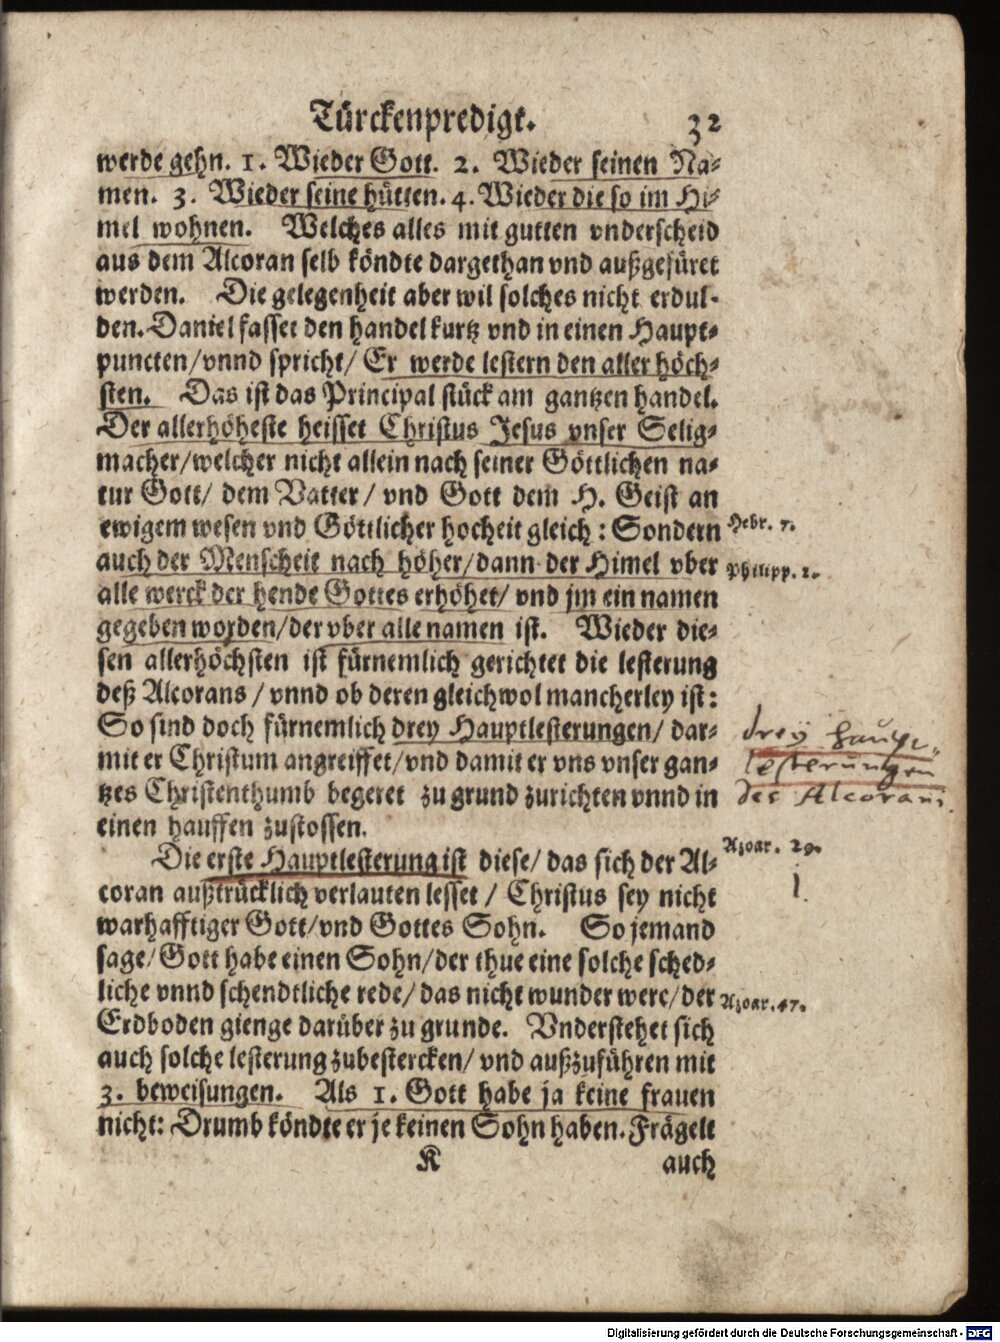 Türckenpredigt. 32
werde gehn. 1. Wieder Gott. 2. Wieder seinen Na-
men. 3. Wieder seine hütten. 4. Wieder die so im Hi-
mel wohnen. Welches alles mit gutten vnderscheid
aus dem Alcoran selb köndte dargethan vnd außgefüret
werden. Die gelegenheit aber wil solches nicht erdul-
den. Daniel fasset den handel kurtz vnd in einen Haupt-
puncten/vnnd spricht/ Er werde lestern den aller höch-
sten. Das ist das Principal stück am gantzen handel.
Der allerhöheste heisset Christus Jesus vnser Selig-
macher/welcher nicht allein nach seiner Göttlichen na-
tur Gott/ dem Vatter/ vnd Gott dem H. Geist an
ewigem wesen vnd Göttlicher hocheit gleich: Sondern
Hebr. 7.
auch der Menscheit nach höher/dann der Himel vber
Philipp. 2.
alle werck der hende Gottes erhöhet/ vnd jm ein namen
gegeben worden/der vber alle namen ist. Wieder die-
sen allerhöchsten ist fürnemlich gerichtet die lesterung
deß Alcorans/ vnnd ob deren gleichwol mancherley ist:
So sind doch fürnemlich drey Hauptlesterungen/ dar-
mit er Christum angreiffet/vnd damit er vns vnser gan-
tzes Christenthumb begeret zu grund zurichten vnnd in
einen hauffen zustossen.
drey haupt-
lesterungen
des Alcorans.
Die erste Hauptlesterung ist diese/ das sich der Al-
Azoar. 29.
1.
coran außtrücklich verlauten lesset/ Christus sey nicht
warhafftiger Gott/vnd Gottes Sohn. So jemand
sage/Gott habe einen Sohn/der thue eine solche sched-
liche vnnd schendtliche rede/ das nicht wunder were/der
Azoar. 47.
Erdboden gienge darüber zu grunde. Vnderstehet sich
auch solche lesterung zubestercken/ vnd außzuführen mit
3. beweisungen. Als 1. Gott habe ja keine frauen
nicht: Drumb köndte er je keinen Sohn haben. Frägelt
K auch
Digitalisierung gefördert durch die Deutsche Forschungsgemeinschaft - DFG